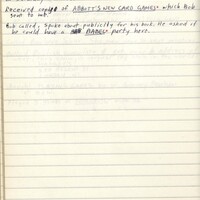 Received copy of ABBOTT'S NEW CARD GAMES which Bob
sent to me.
Bob called; spoke about publicity for his book. He asked if
he could have a BABEL party here.